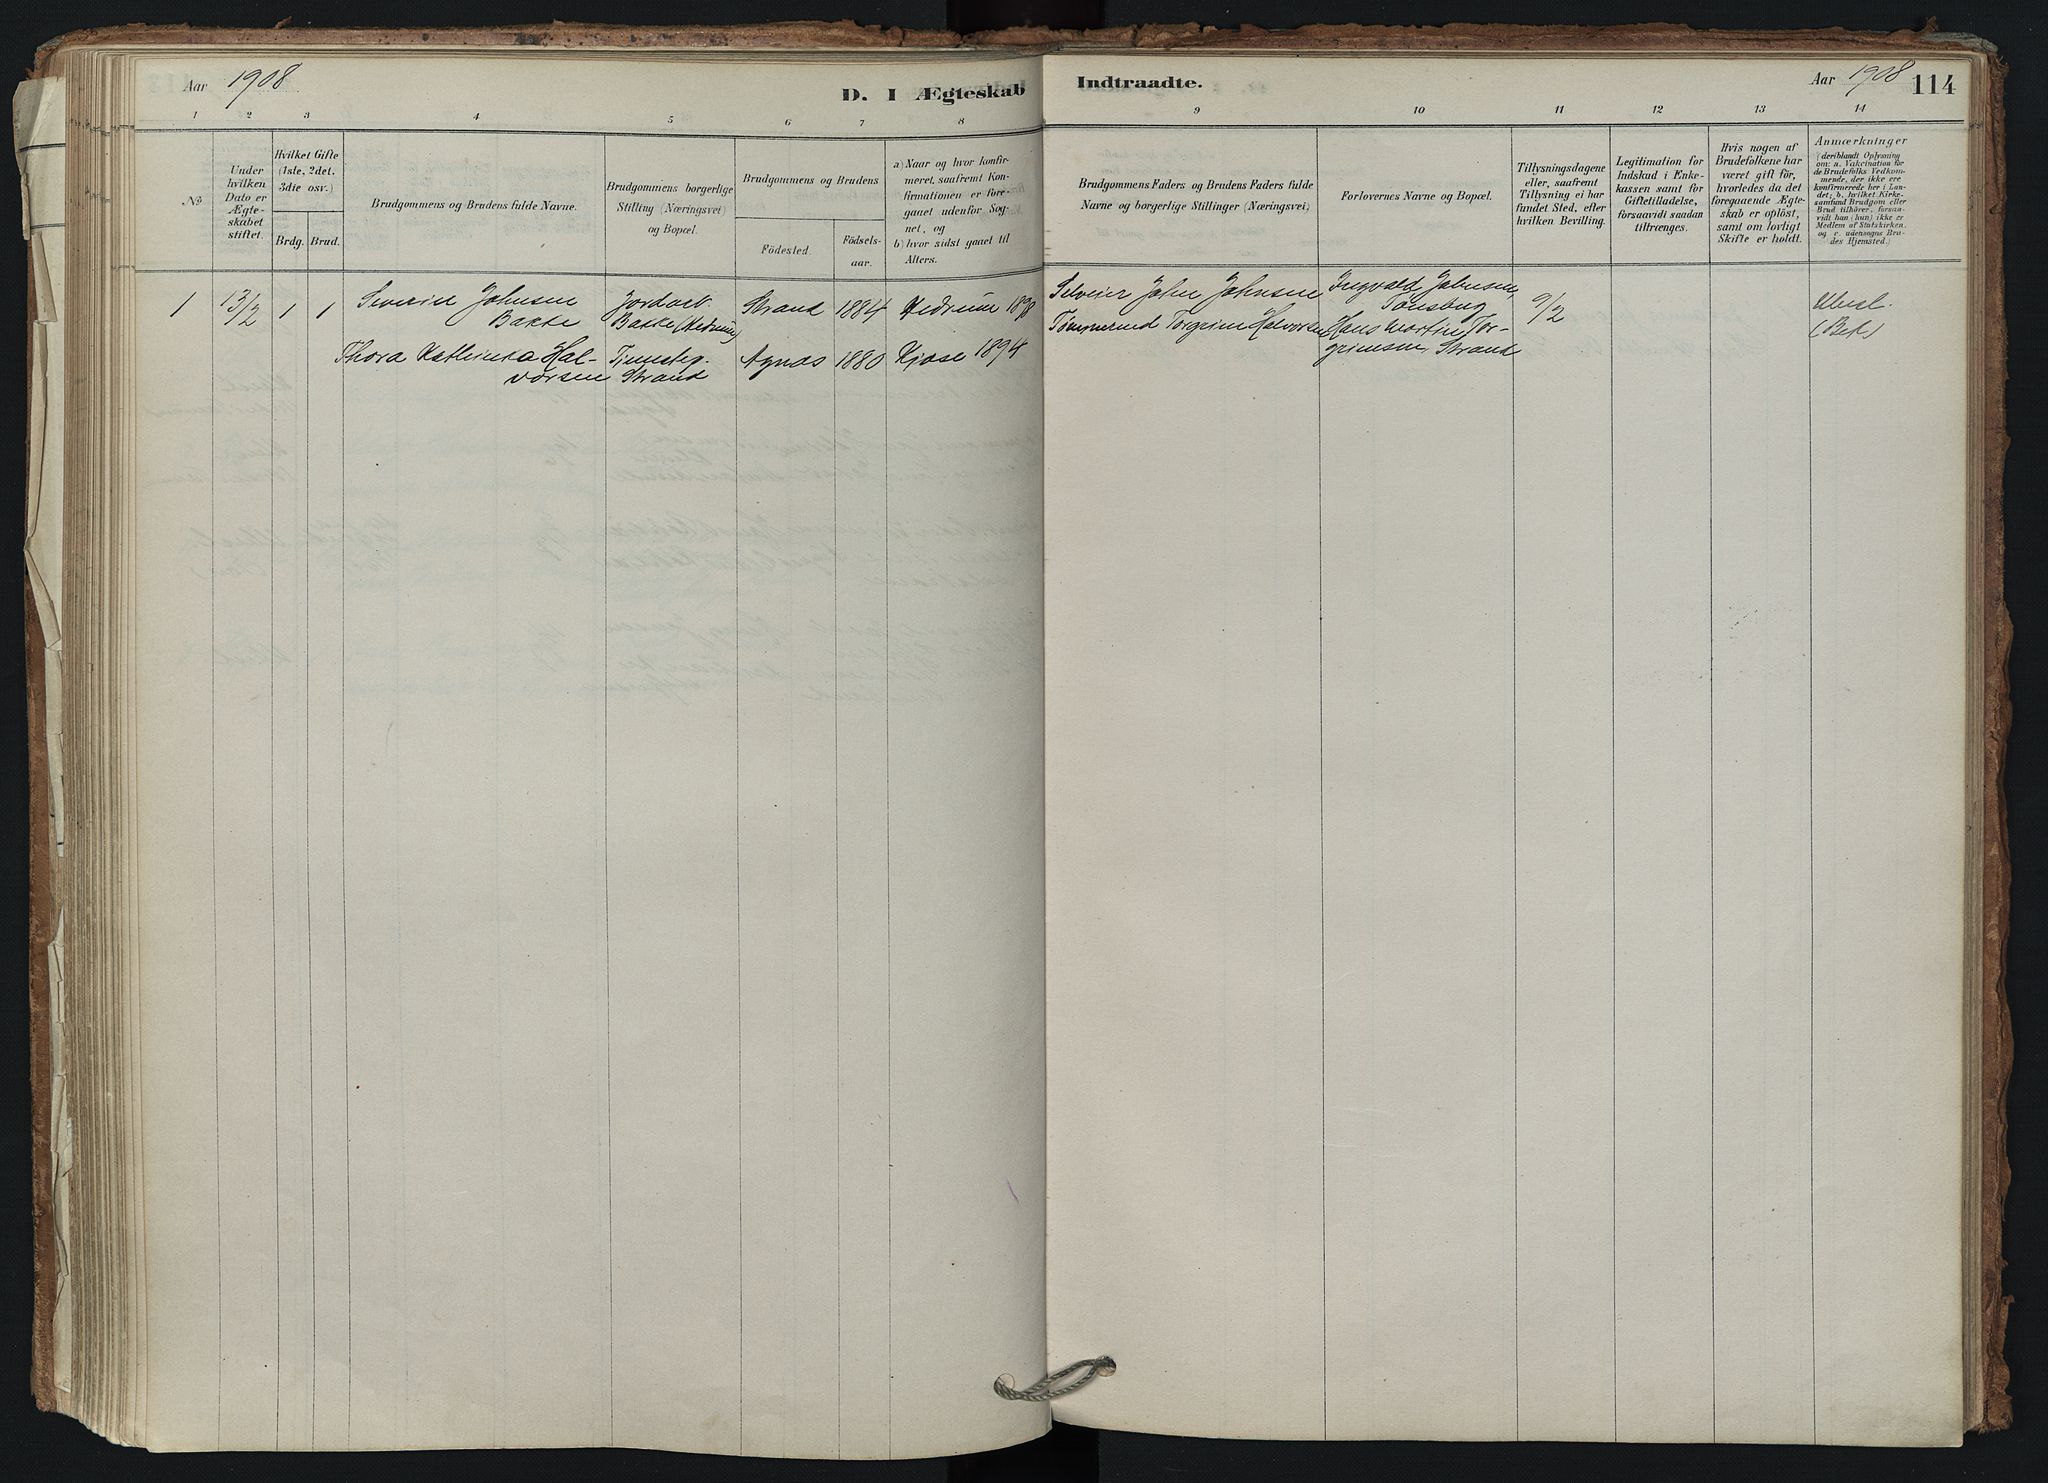 Aar 1908
D. I Ægteskab
Indtraadte.
Aar 1908
114
1 2 3 4 5 6 7 8 9 10 11 12 13 14
№
Under
hvilken
Dato er
Ægte-
skabet
stiftet.
Hvilket Gifte
(1ste, 2det.
3die osv.)
Brdg.
Brud.
Brudgommens og Brudens fulde Navne.
Brudgommens borgerlige
Stilling (Næringsvei)
og Bopæl.
Brudgommens og Brudens
Födested.
Födsels-
aar.
a) Naar og hvor konfir-
meret, saafremt Kon-
firmationen er fore-
gaaet udenfor Sog-
net, og
b) hvor sidst gaaet til
Alters.
Brudgommens Faders og Brudens Faders fulde
Navne og borgerlige Stillinger (Næringsvei).
Forlovernes Navne og Bopæl.
Tillysningsdagene
eller, saafremt
Tillysning ei har
fundet Sted, efter
hvilken Bevilling.
Legitimation for
Indskud i Enke-
kassen samt for
Giftetilladelse,
forsaavidt saadan
tiltrænges.
Hvis nogen af
Brudefolkene har
været gift för,
hvorledes da det
foregaaende Ægte-
skab er oplöst,
samt om lovligt
Skifte er holdt.
Anmærkninger
(deriblandt Oplysning
om: a. Vakcination för
de Brudefolks Vedkom-
mende, der ikke ere
konfirmerede her i Lan-
det; b. hvilket Kirke-
samfund Brudgom eller
Brud tilhörer, forsaa-
vidt han (hun) ikke er
Medlem af Statskirken.
og c. udensogns Bru-
des Hjemsted.)
1 13/2 1 1 Severin Johnsen
Bakke
Jordarb.
Bakke (Hedrum)
Strand 1884 Hedrum 1898
John Johnsen
Ingvald Johnsen,
Tönsberg
9/2
(Bek)
Thora Kathrinka Hal-
vorsen
Tjenestpg.
Strand
Agnæs 1880 Kjose 1894
Tömmermd Torgrim Halvorsen
Hans Martin Tor-
grimsen, Strand